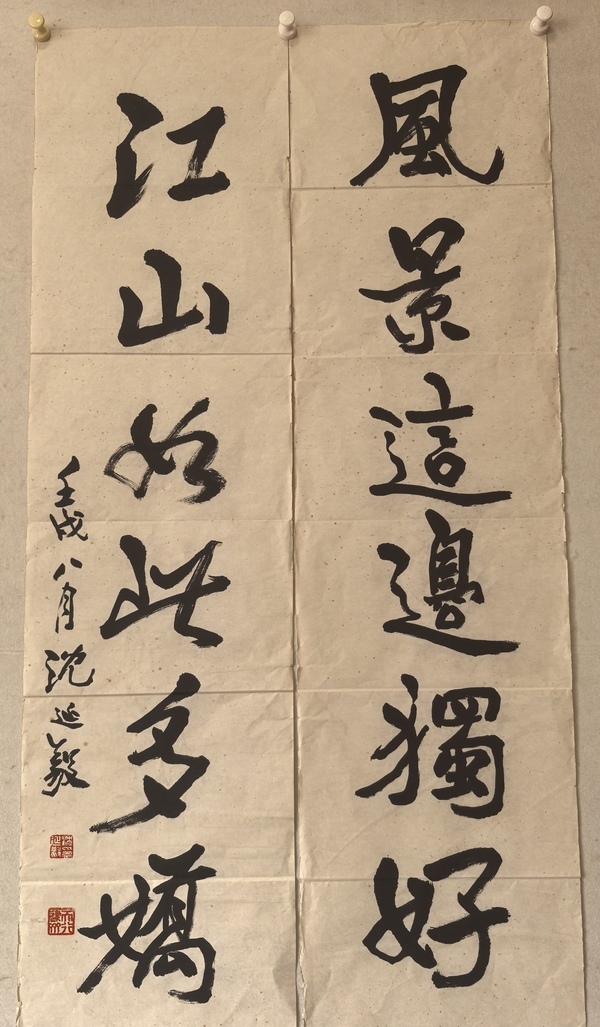 風景這邊獨好
江山如此多嬌
壬戌八月沈延毅